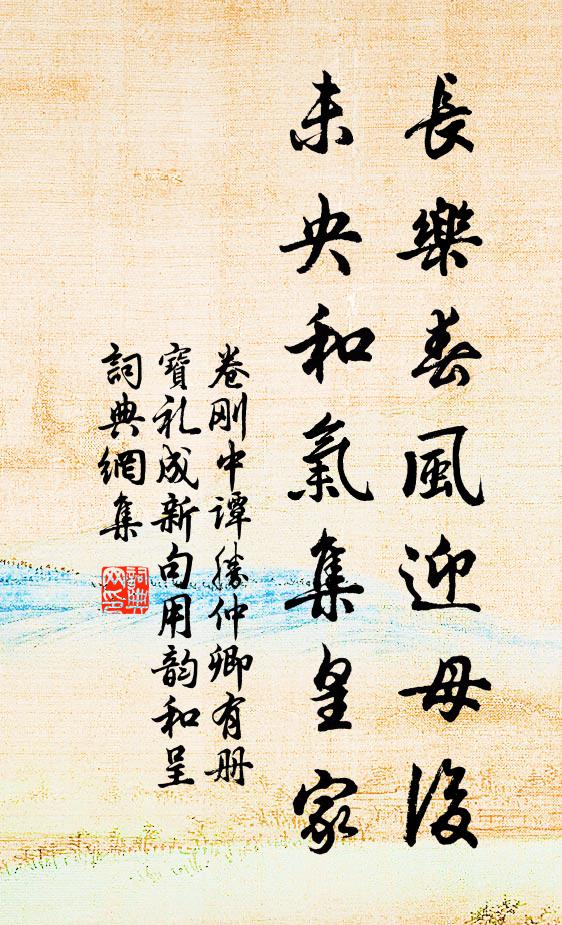 長樂春風迎母後
未央和氣集皇家
卷刚中谭勝仲卿有册
寶礼成新句用韵和呈
詞典網集
詞典
文印